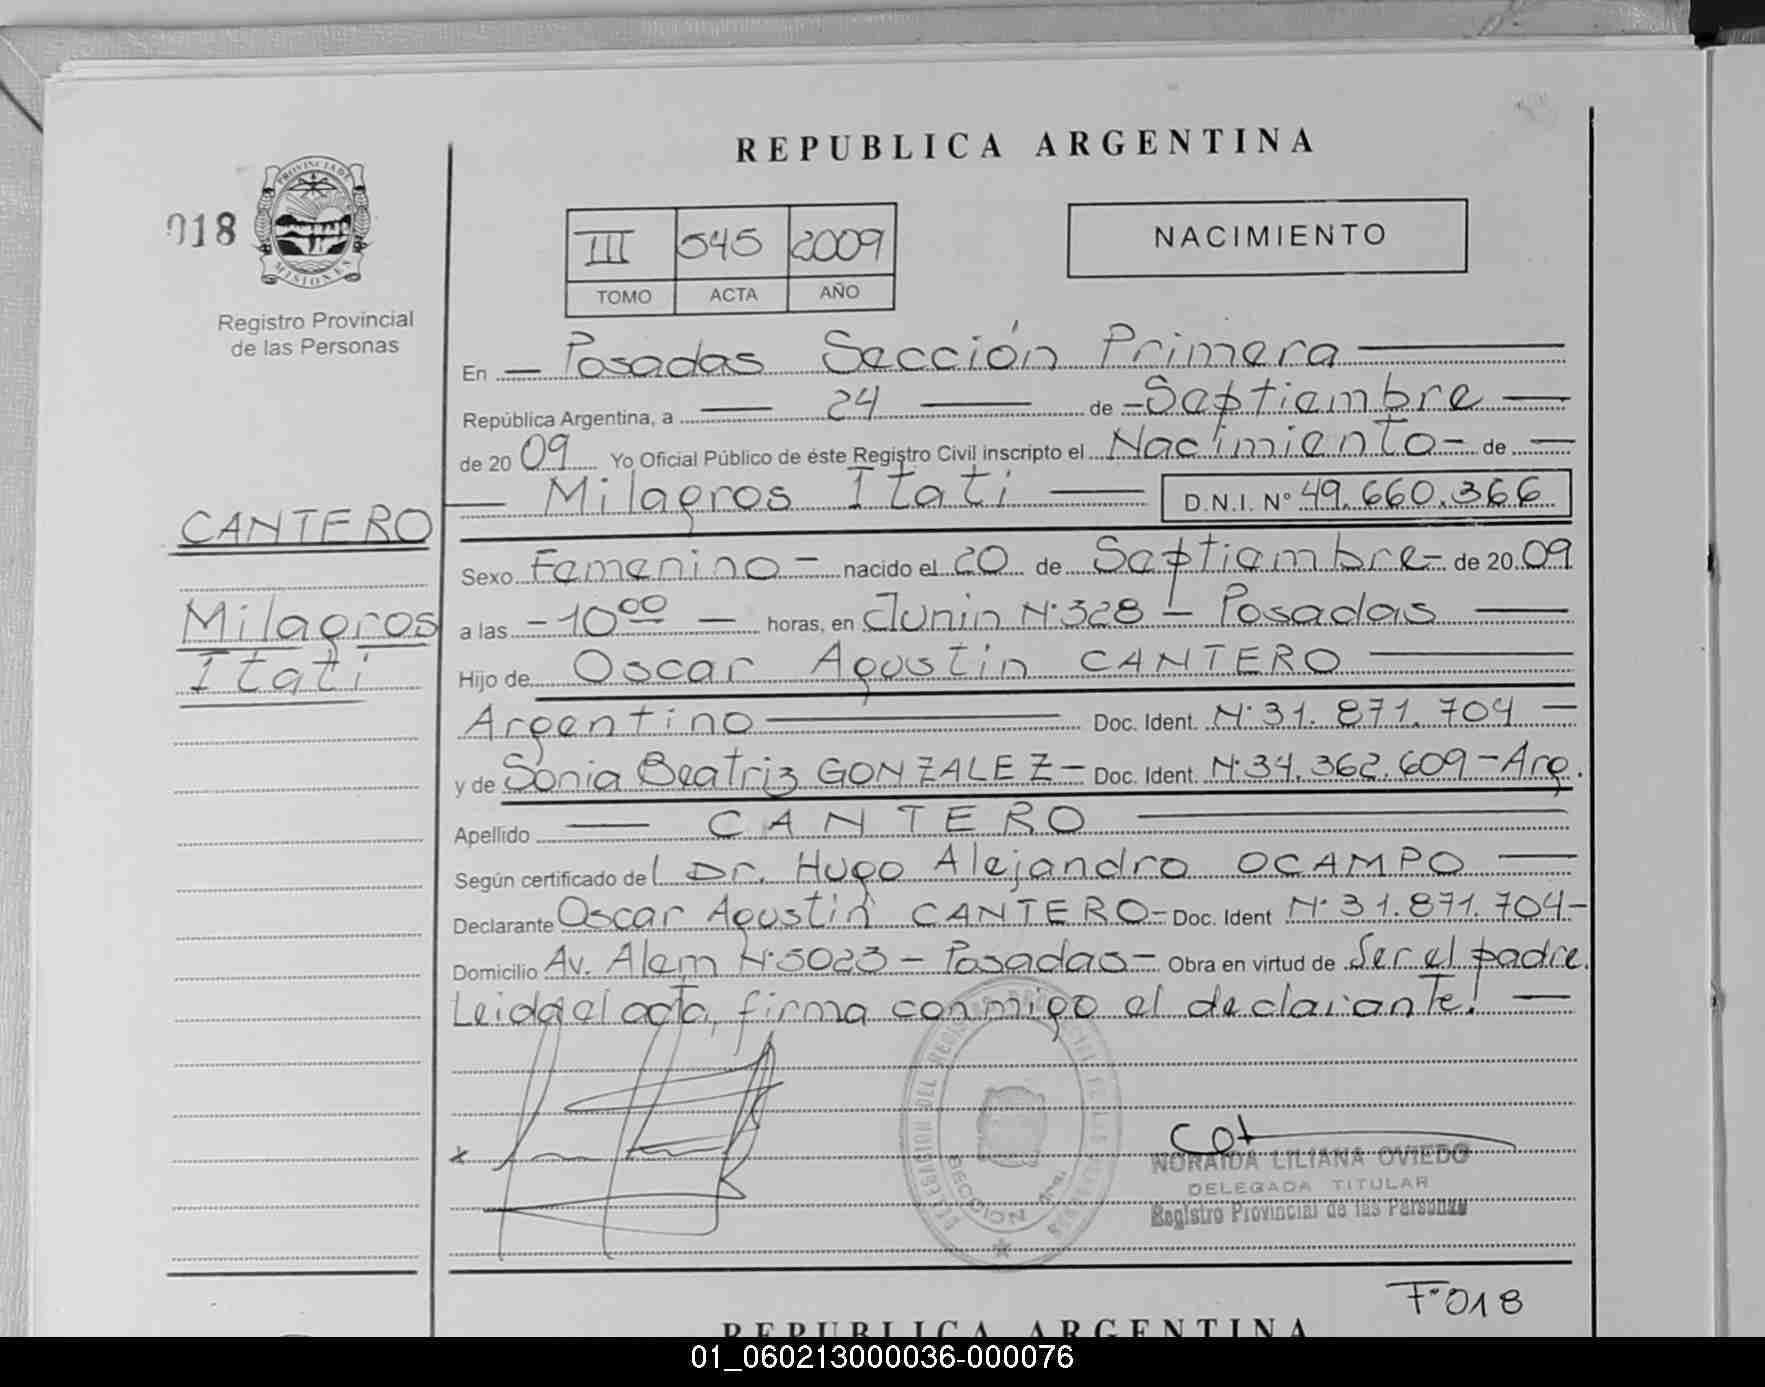 REPUBLICA ARGENTINA
018
PROVINCIA DE
MISIONES
Registro Provincial
de las Personas
III 545 2009
TOMO ACTA AÑO
NACIMIENTO
En — Posadas Sección Primera —
República Argentina, a — 24 — de - Septiembre —
de 2009 Yo Oficial Público de éste Registro Civil inscripto el Nacimiento - de —
— Milagros Itati — D.N.I. N° 49.660.366
CANTERO
Milagros
Itati
Sexo Femenino - nacido el 20 de Septiembre - de 2009
a las - 10 00 — horas, en Junin N° 328 - Posadas —
Hijo de Oscar Agustin CANTERO —
Argentino — Doc. Ident. N° 31.871.704 —
y de Sonia Beatriz GONZALEZ - Doc. Ident. N° 34.362.609 - Arg.
Apellido — CANTERO —
Según certificado del Dr. Hugo Alejandro OCAMPO —
Declarante Oscar Agustin CANTERO - Doc. Ident N° 31.871.704 -
Domicilio Av. Alem N° 5023 - Posadas - Obra en virtud de Ser el padre.
Leida el acta, firma conmigo el declarante! —
SECCION 1ra.
NORAIDA LILIANA OVIEDO
DELEGADA TITULAR
Registro Provincial de las Personas
F° 018
REPUBLICA ARGENTINA
01_060213000036-000076